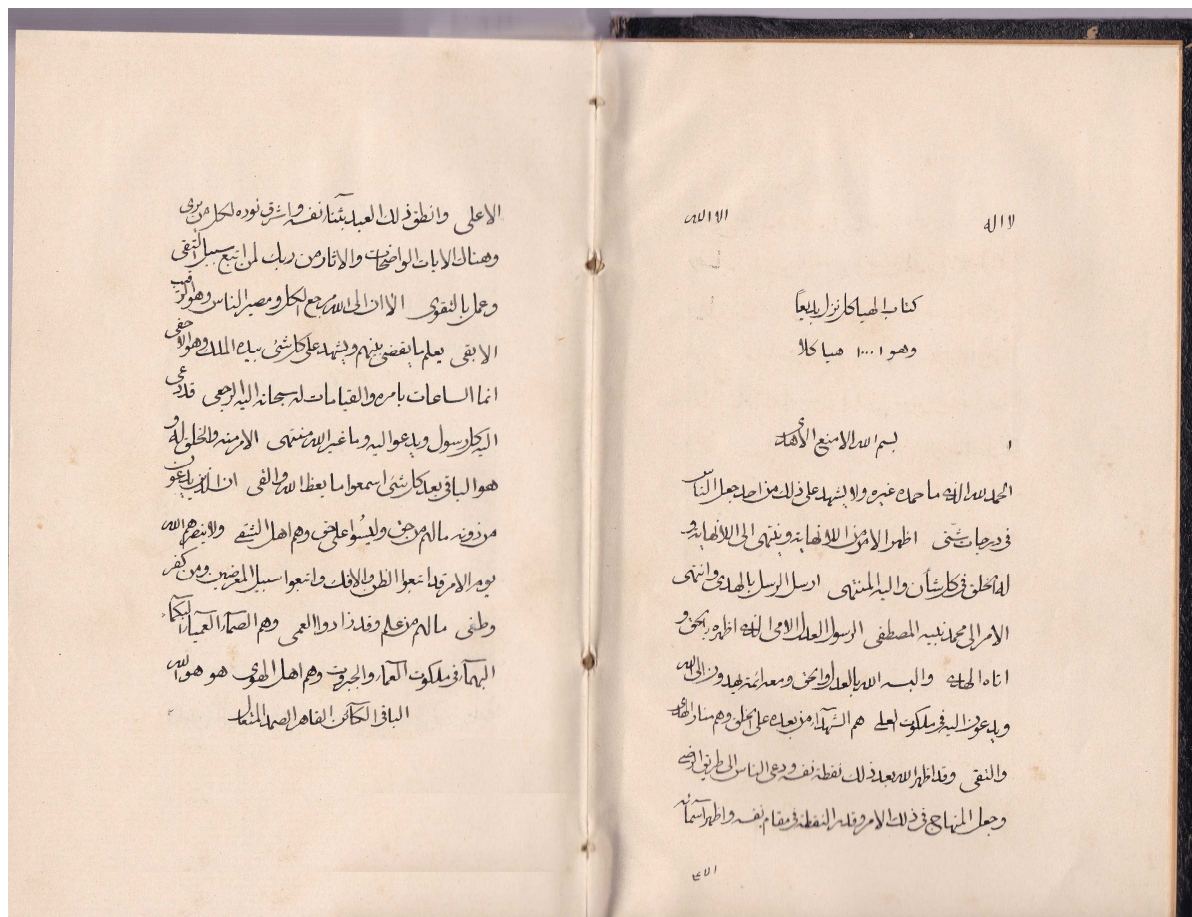 لا اله الا الله
كتاب الهياكل نزل بديعاً
وهو ١٠٠٠١ هياكلا
١ بسم الله الامنع الاهى
الحمد لله الذى ما حمده غيره ولا يشهد على ذلك من احد جعل الناس
فى درجات شتى اظهر الامر من اللانهاية وينتهى الى اللانهاية و
له الخلق فى كل شأن واليه المنتهى ارسل الرسل بالهدى وانتهى
الامر الى محمد نبيه المصطفى الرسول العدل الامى الذى اظهره بالحق و
اتاه الهدى والبسه الله بالعدل والحق ومعه ائمة يهدون الى الله
ويدعون اليه فى ملكوت العلى هم الشهدآء من بعده على الخلق وهم منار الهدى
والتقى وقد اظهر الله بعد ذلك نقطة نفسه ودعى الناس الى طريق الرضى
وجعل المنهاج فى ذلك الامر وقدر النقطة فى مقام نفسه واظهر اسمائه
الاعلى وانطق ذلك العبد بثنآء نفسه واشرق نوره لكل من يرى
وهناك الايات الواضحات والاثار من ربك لمن اتبع سبيل التقى
وعمل بالتقوى الا ان الى الله مرجع الكل ومصير الناس وهو الرقيب
الابقى يعلم ما يقضى بينهم ويشهد على كل شئ بيده الملك وهو الاخفى
انما الساعات بامره والقيامات له سبحانه اليه الرجعى قد دعى
اليه كل رسول ويدعو اليه وما غير الله منتهى الامر منه والخلق له و
هو الباقى بعد كل شئ اسمعوا ما يعظ الله والقى ان الذين يدعون
من دونه مالهم من حق وليسوا على حق وهم اهل الشقى ولا ينصرهم الله
يوم الامر قد اتبعوا الظن والافك واتبعوا سبيل المعرضين ومن كفر
وطغى مالهم من علم وقد زادوا العمى وهم الصمآء العميآء البكمآء
البهمآء فى ملكوت العمآء والجبروت وهم اهل الهوى هو هو الله
الباقى الكآئن القاهر الصمد المتعال